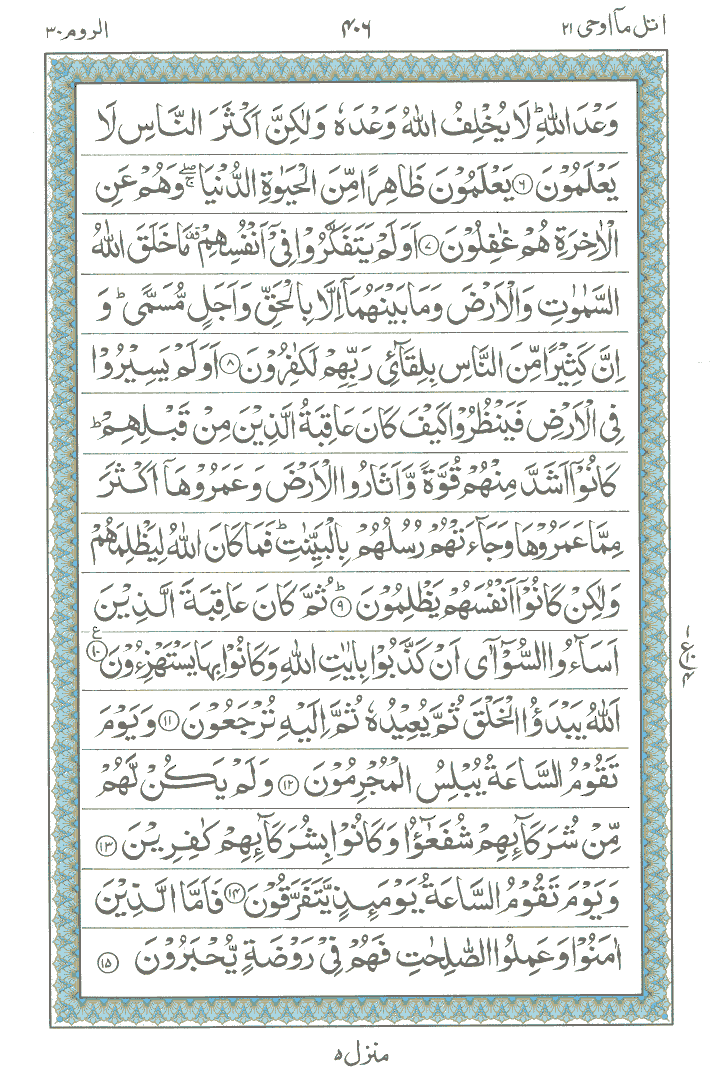 اتل مآ اوحی ۲۱
۴۰۶
الروم ۳۰
وَعْدَ اللّٰهِ ؕ لَا يُخْلِفُ اللّٰهُ وَعْدَهٗ وَلٰكِنَّ اَكْثَرَ النَّاسِ لَا
يَعْلَمُوْنَ ۝۶ يَعْلَمُوْنَ ظَاهِرًا مِّنَ الْحَيٰوةِ الدُّنْيَا ۖۚ وَهُمْ عَنِ
الْاٰخِرَةِ هُمْ غٰفِلُوْنَ ۝۷ اَوَلَمْ يَتَفَكَّرُوْا فِيْۤ اَنْفُسِهِمْ ۫ مَا خَلَقَ اللّٰهُ
السَّمٰوٰتِ وَالْاَرْضَ وَمَا بَيْنَهُمَاۤ اِلَّا بِالْحَقِّ وَاَجَلٍ مُّسَمًّى ؕ وَ
اِنَّ كَثِيْرًا مِّنَ النَّاسِ بِلِقَآئِ رَبِّهِمْ لَكٰفِرُوْنَ ۝۸ اَوَلَمْ يَسِيْرُوْا
فِي الْاَرْضِ فَيَنْظُرُوْا كَيْفَ كَانَ عَاقِبَةُ الَّذِيْنَ مِنْ قَبْلِهِمْ ؕ
كَانُوْۤا اَشَدَّ مِنْهُمْ قُوَّةً وَّاَثَارُوا الْاَرْضَ وَعَمَرُوْهَاۤ اَكْثَرَ
مِمَّا عَمَرُوْهَا وَجَآءَتْهُمْ رُسُلُهُمْ بِالْبَيِّنٰتِ ؕ فَمَا كَانَ اللّٰهُ لِيَظْلِمَهُمْ
وَلٰكِنْ كَانُوْۤا اَنْفُسَهُمْ يَظْلِمُوْنَ ؕ۝۹ ثُمَّ كَانَ عَاقِبَةَ الَّذِيْنَ
اَسَآءُوا السُّوْٓاٰۤى اَنْ كَذَّبُوْا بِاٰيٰتِ اللّٰهِ وَكَانُوْا بِهَا يَسْتَهْزِءُوْنَ ۝۱۰ ع
اَللّٰهُ يَبْدَؤُا الْخَلْقَ ثُمَّ يُعِيْدُهٗ ثُمَّ اِلَيْهِ تُرْجَعُوْنَ ۝۱۱ وَيَوْمَ
تَقُوْمُ السَّاعَةُ يُبْلِسُ الْمُجْرِمُوْنَ ۝۱۲ وَلَمْ يَكُنْ لَّهُمْ
مِّنْ شُرَكَآئِهِمْ شُفَعٰٓؤُا وَكَانُوْا بِشُرَكَآئِهِمْ كٰفِرِيْنَ ۝۱۳
وَيَوْمَ تَقُوْمُ السَّاعَةُ يَوْمَئِذٍ يَّتَفَرَّقُوْنَ ۝۱۴ فَاَمَّا الَّذِيْنَ
اٰمَنُوْا وَعَمِلُوا الصّٰلِحٰتِ فَهُمْ فِيْ رَوْضَةٍ يُّحْبَرُوْنَ ۝۱۵
۱
ع ۱۰
۴
منزل ۵